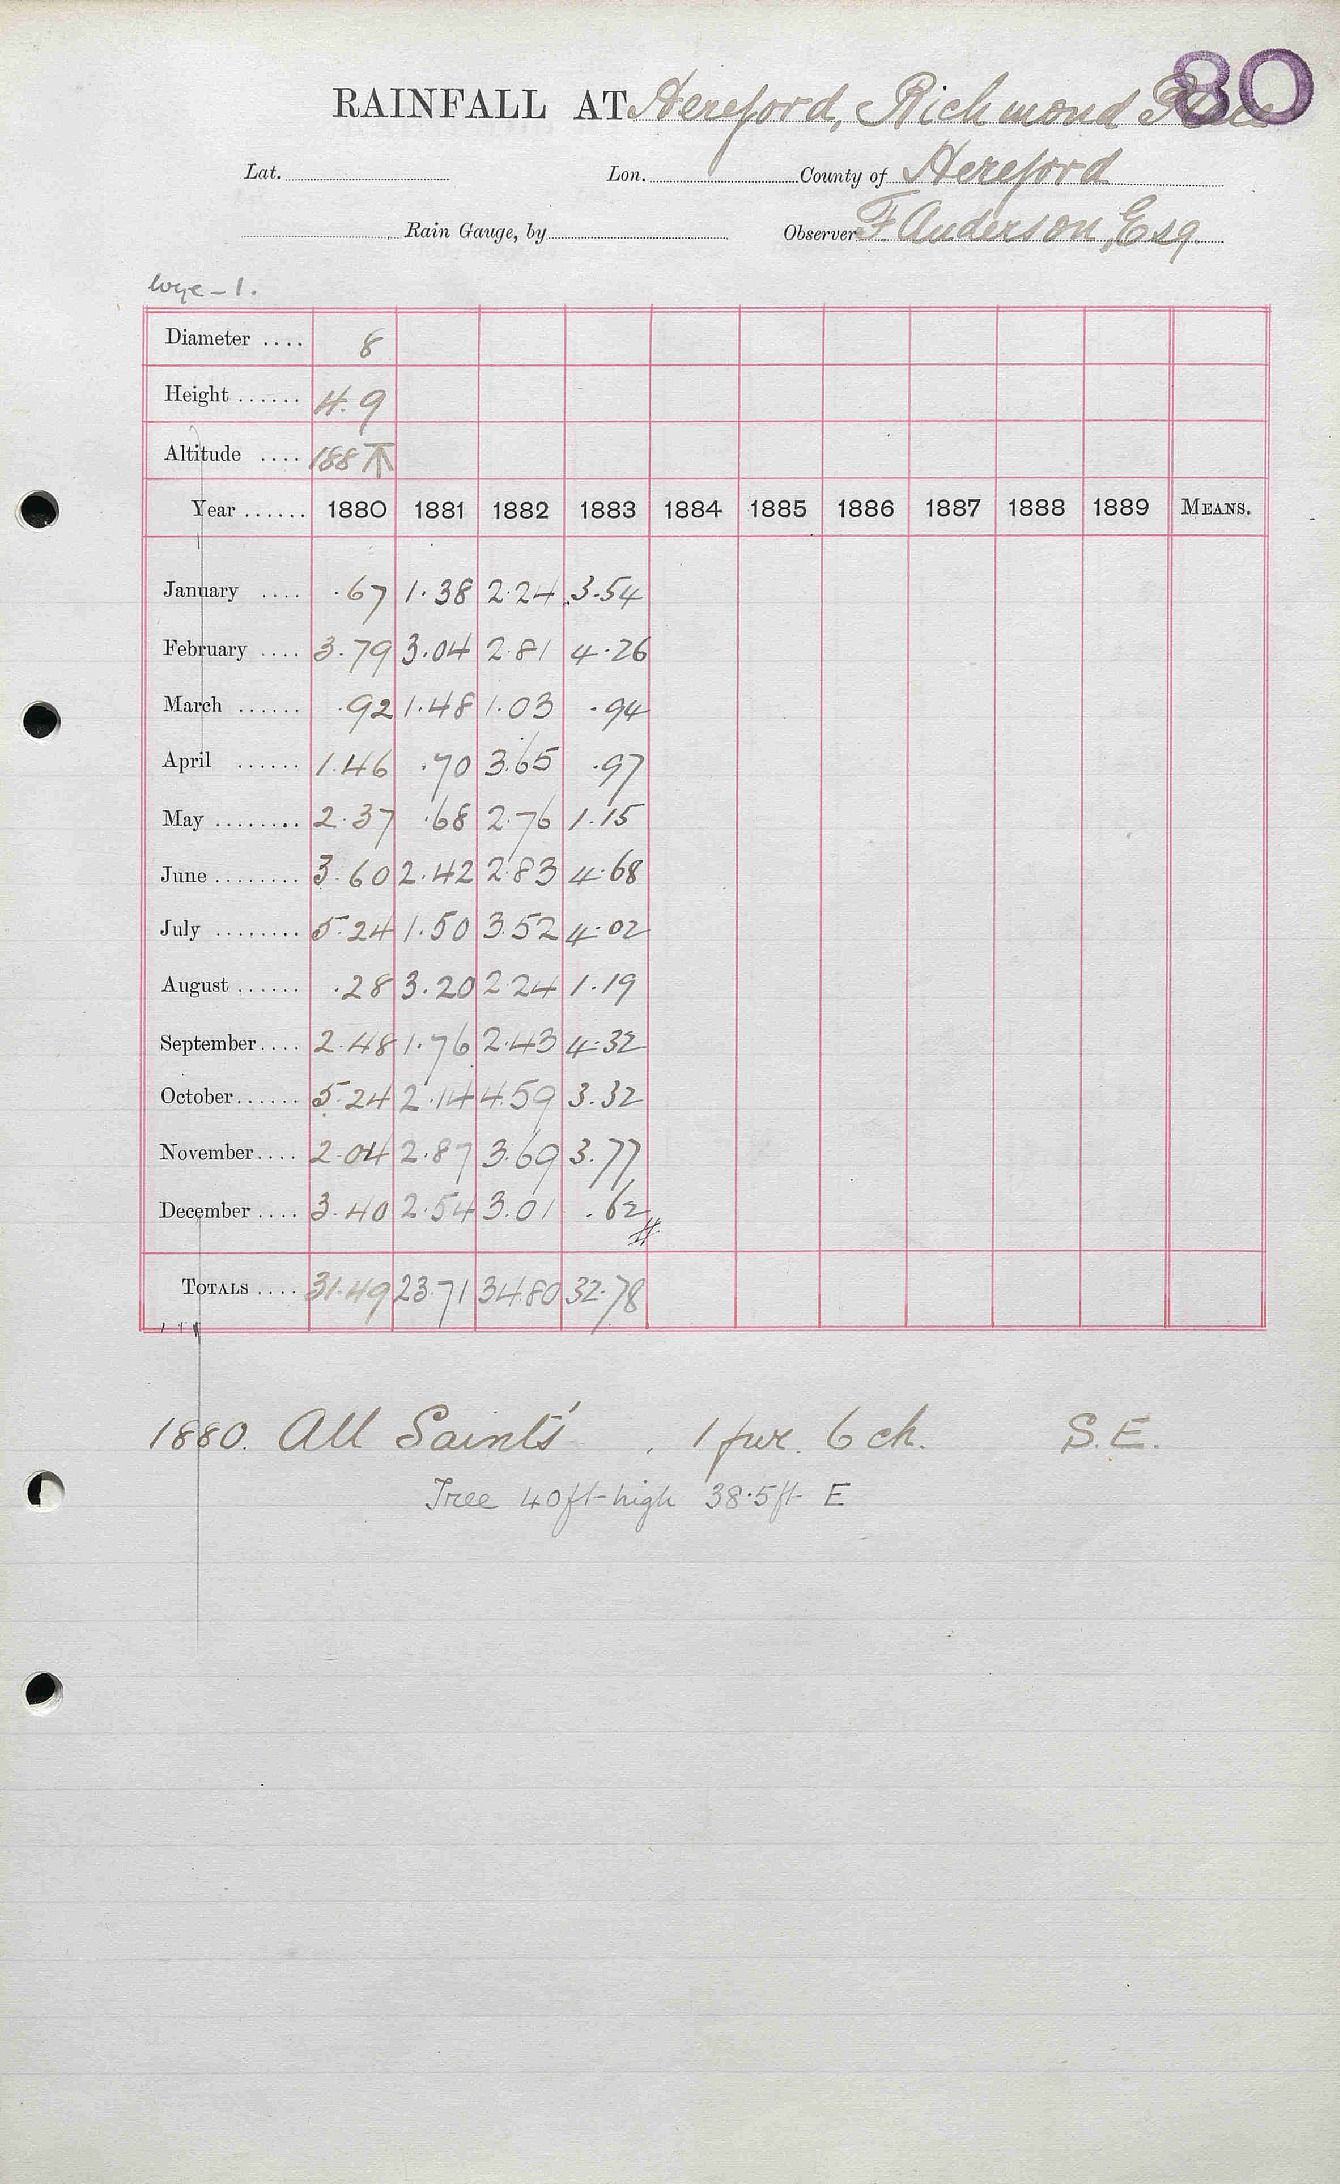 80
RAINFALL AT Hereford, Richmond Place
Lat. Lon. County of Hereford
Rain Gauge, by Observer F Anderson, Esq
Wye-1.
Diameter .... 8
Height ...... 4.9
Altitude .... 188
Year ...... 1880 1881 1882 1883 1884 1885 1886 1887 1888 1889 MEANS.
January .... .67 1.38 2.24 3.54
February .... 3.79 3.04 2.81 4.26
March ...... .92 1.48 1.03 .94
April ...... 1.46 .70 3.65 .97
May ........ 2.37 .68 2.76 1.15
June ........ 3.60 2.42 2.83 4.68
July ........ 5.24 1.50 3.52 4.02
August ...... .28 3.20 2.24 1.19
September .... 2.48 1.76 2.43 4.32
October ...... 5.24 2.14 4.59 3.32
November .... 2.04 2.87 3.69 3.77
December .... 3.40 2.54 3.01 .62
TOTALS .... 31.49 23.71 34.80 32.78
1880. All Saints' 1 fur. 6 ch. S.E.
Tree 40ft-high 38.5ft E